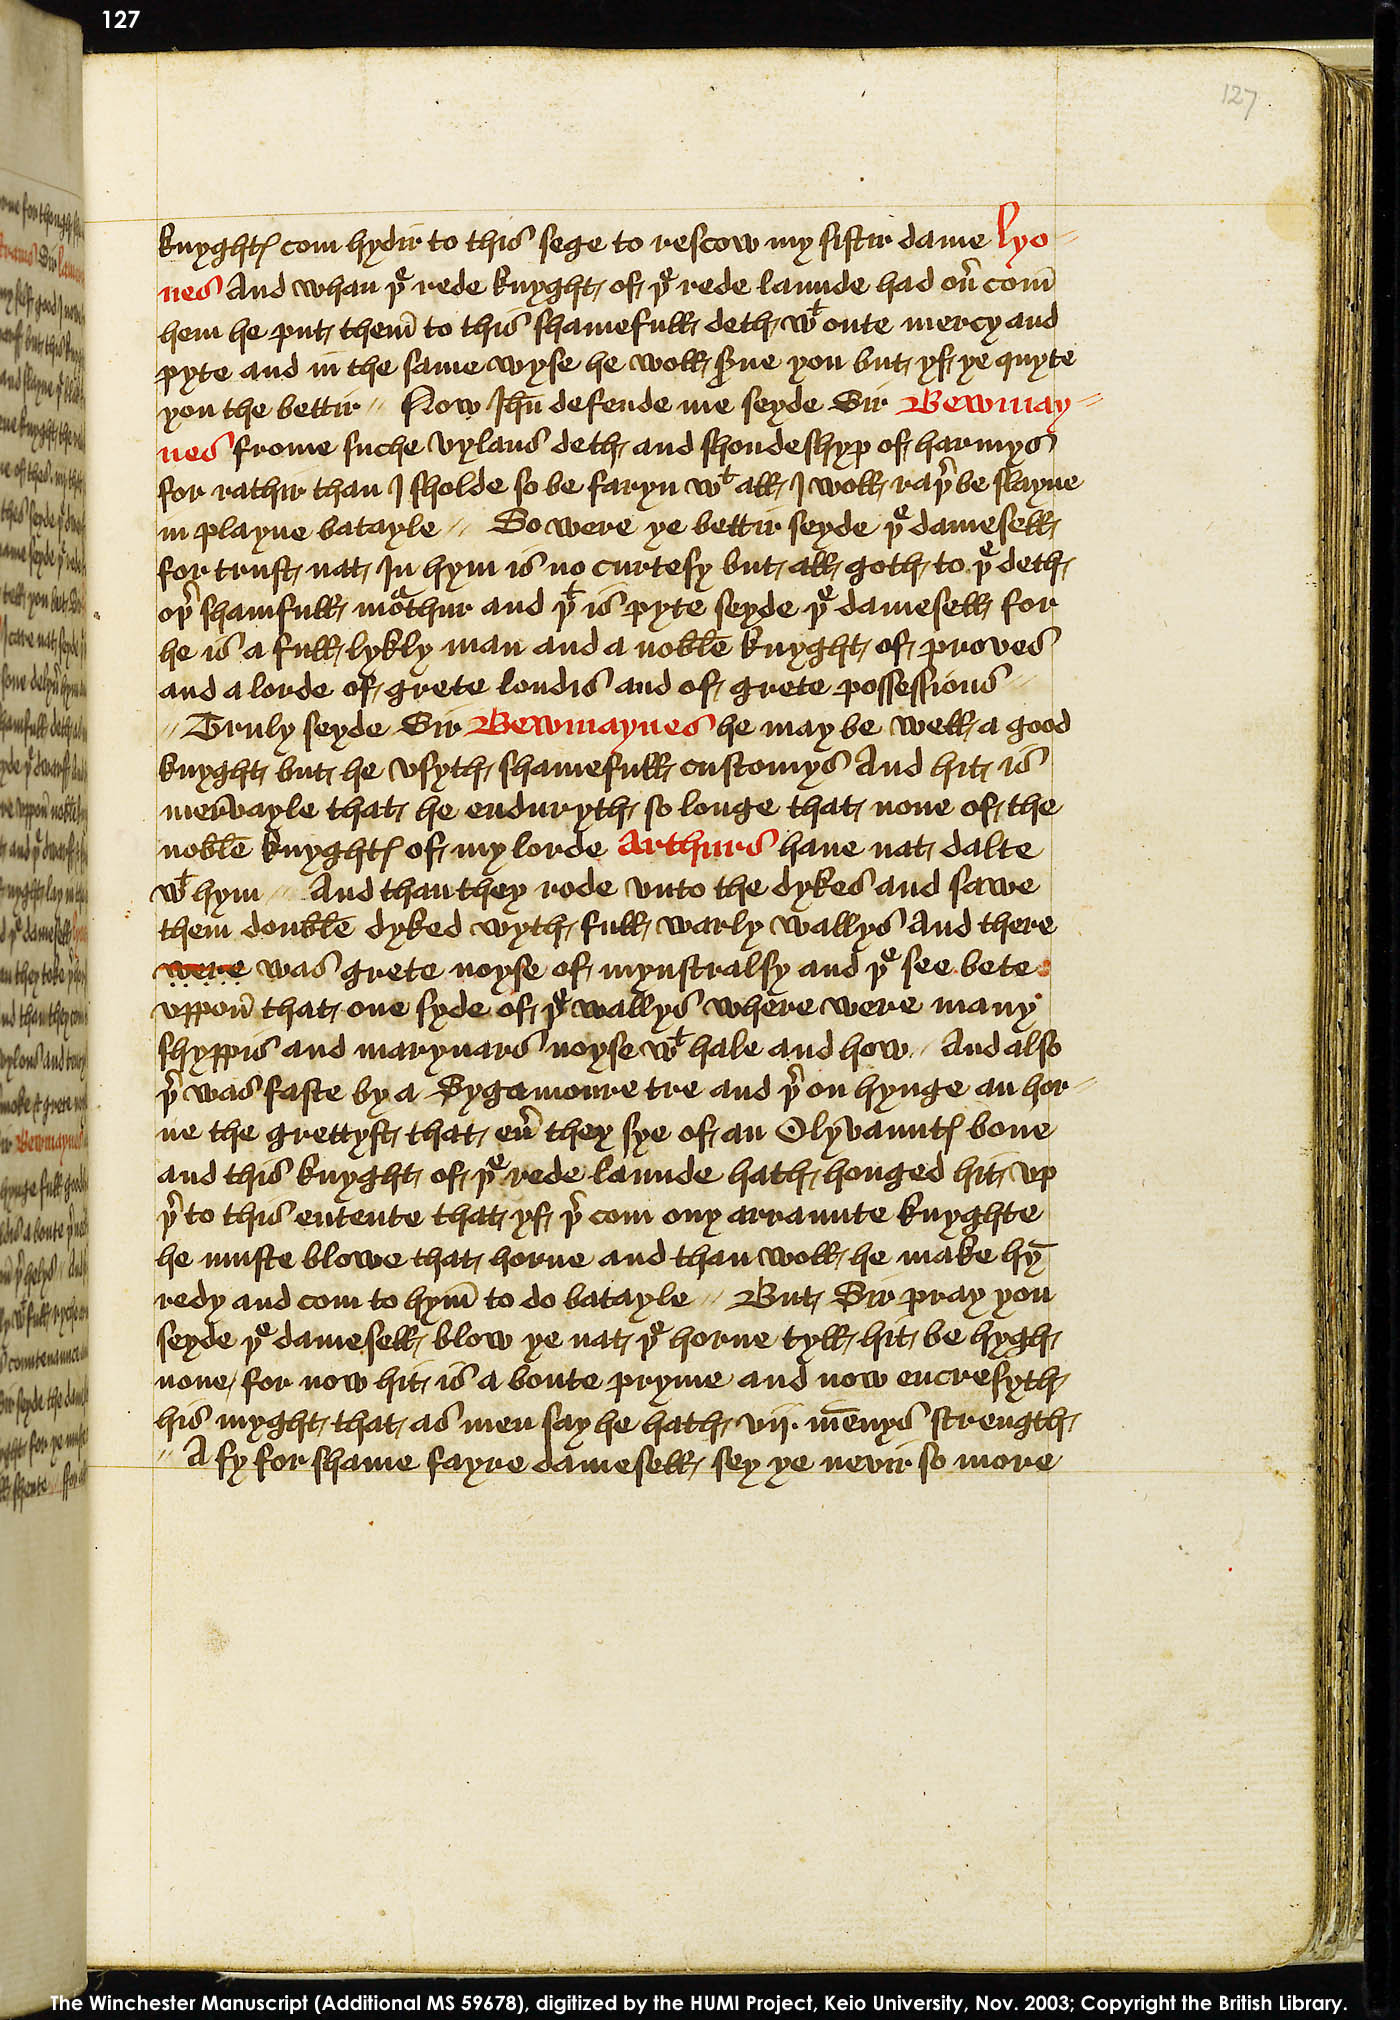 127
127
knyghtꝭ com hydir to this sege to rescow my sistir dame lyo=
nes And whan þe rede knyght of þe rede launde had ou͛ com̄
hem he put them̄ to this shamefull deth wt oute mercy and
pyte and in the same wyse he woll ẜue you but yf ye quyte
you the bettir // Now Jhū defende me seyde Sir Bewmay=
nes frome suche vylans deth and shondeshyp of harmys
for rathir than I sholde so be faryn wt all I woll raþ͛ be slayne
in playne batayle // So were ye bettir seyde þe damesell
for trust nat In hym is no curtesy but all goth to þe deth
oþ͛ shamfull moͣthur and þt is pyte seyde þe damesell for
he is a full lykly man and a noble knyght of proves
and a lorde of grete londis and of grete possessions //
// Truly seyde Sir Bewmaynes he may be well a good
knyght but he vsyth shamefull customys And hit is
mervayle that he enduryth so longe that none of the
noble knyghtꝭ of my lorde Arthurs haue nat dalte
wt hym // And than they rode vnto the dykes and sawe
them double dyked wyth full warly wallys And there
were was grete noyse of mynstralsy and þe see bete
vppon̄ that one syde of þe wallys where were many
shyppis and marynars noyse wt hale and how // And also
þ͛ was faste by a Sygamoure tre and þ͛ on hynge an hor=
ne the grettyst that eu͛ they sye of an Olyvauntꝭ bone
and this knyght of þe rede launde hath honged hit vp
þ͛ to this entente that yf þ͛ com ony arraunte knyghte
he muste blowe that horne and than woll he make hȳ
redy and com to hym̄ to do batayle // But Sir pray you
seyde þe damesell blow ye nat þe horne tyll hit be hygh
none for now hit is a boute pryme and now encresyth
his myght that as men say he hath vij. mēnys strength
// A fy for shame fayre damesell sey ye nevir so more
The Winchester Manuscript (Additional MS 59678), digitized by the HUMI Project, Keio University, Nov. 2003; Copyright the British Library.